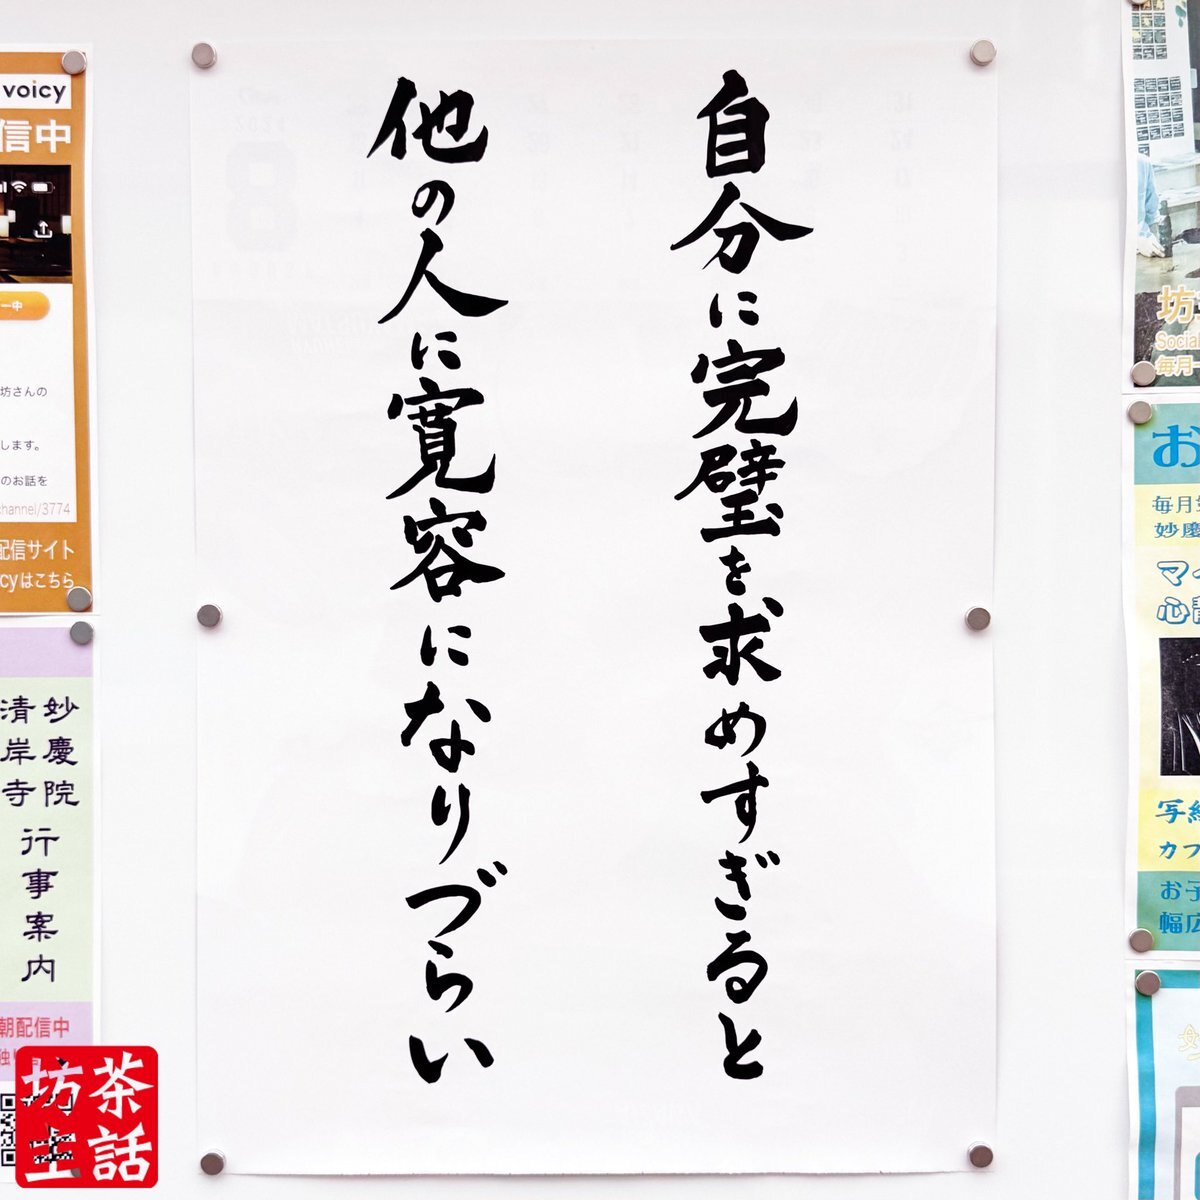 自分に完璧を求めすぎると
他の人に寛容になりづらい
voicy
信中
ー中
坊さんの
します。
のお話を
channel/3774
配信サイト
cyはこちら
妙慶院
清岸寺
行事案内
朝配信中
茶話
坊主
坊
Social
毎月
お
毎月
妙慶
マイ
心
写経
カフ
お子
幅広